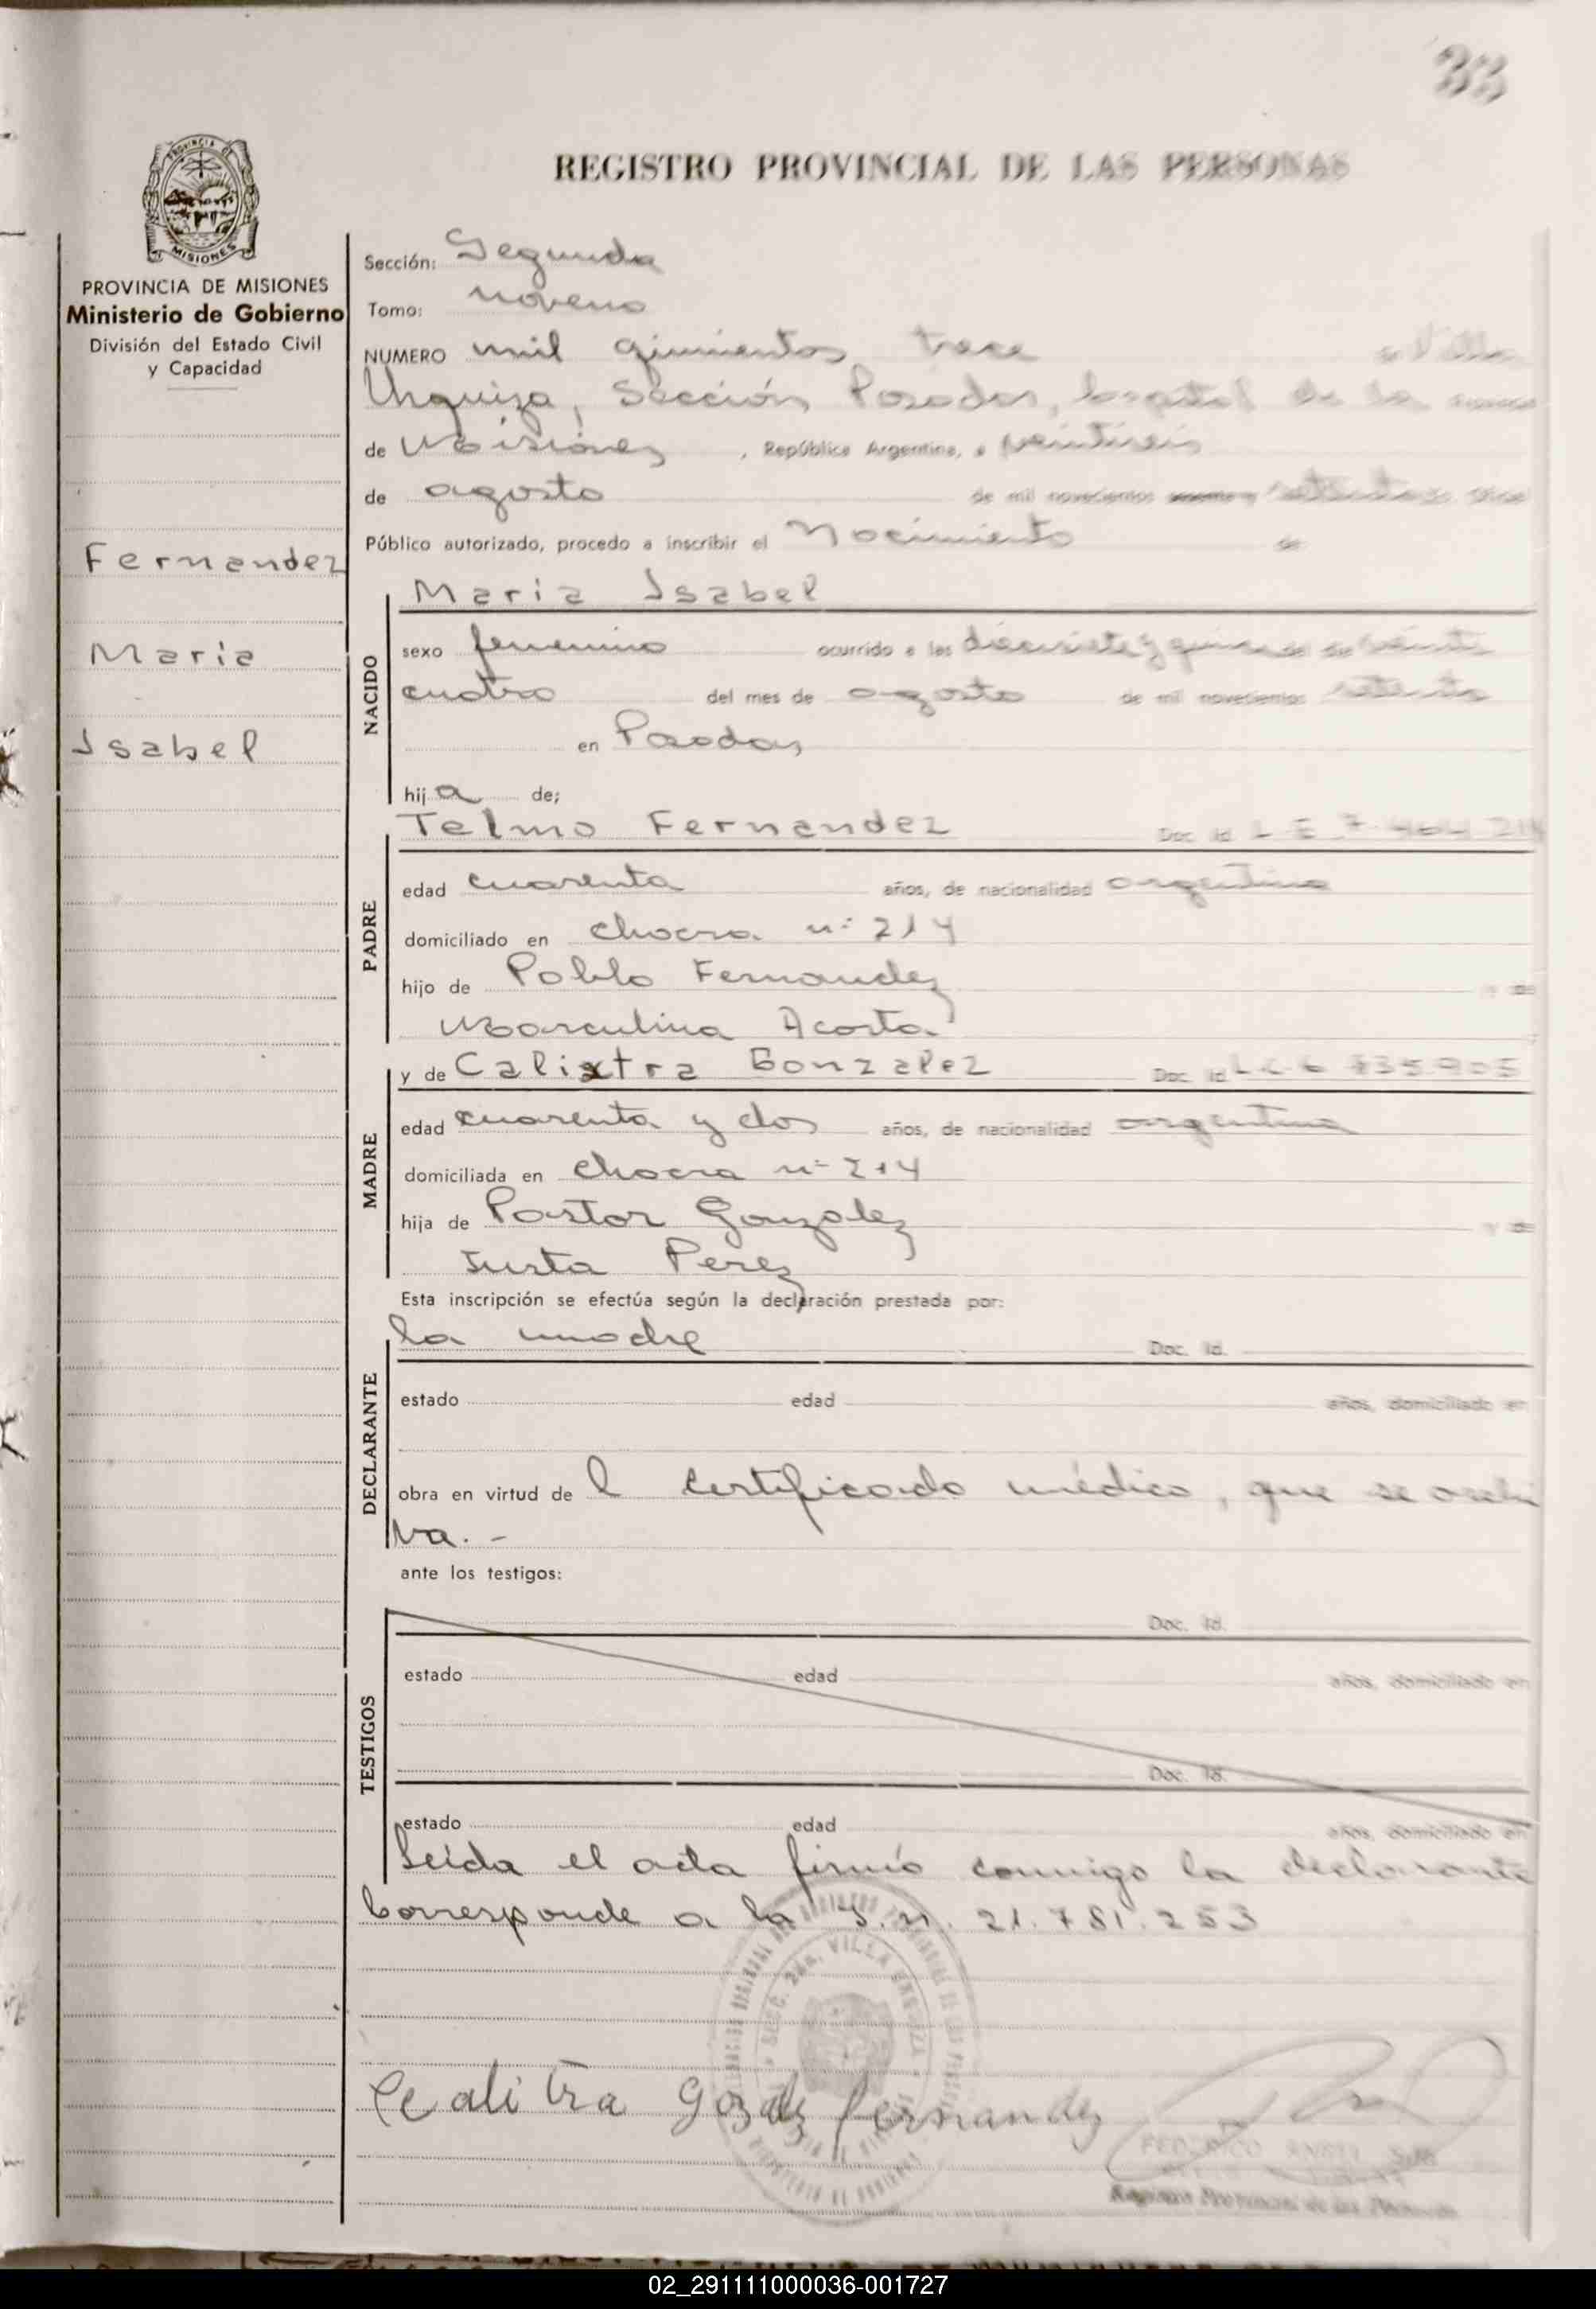 33
PROVINCIA DE
MISIONES
REGISTRO PROVINCIAL DE LAS PERSONAS
PROVINCIA DE MISIONES
Ministerio de Gobierno
División del Estado Civil
y Capacidad
Fernandez
Maria
Isabel
Sección: Segunda
Tomo: noveno
NUMERO mil qinientos trece Villa
Urquiza, Sección Posadas, Capital de la
de Misiones, República Argentina, a veintiseis
de agosto de mil novecientos setenta
Público autorizado, procedo a inscribir el Nacimiento de
NACIDO
Maria Isabel
sexo femenino ocurrido a las diecisiete y quince de veinti
cuatro del mes de agosto de mil novecientos setenta
en Posadas
hija de;
PADRE
Telmo Fernandez Doc. Id. L E 7.464.214
edad cuarenta años, de nacionalidad argentina
domiciliado en chacra nº 214
hijo de Pablo Fernandez y de
Marculina Acosta
MADRE
y de Calixtra Gonzalez Doc. Id. L C 6 835905
edad cuarenta y dos años, de nacionalidad argentina
domiciliada en chacra nº 214
hija de Pastor Gonzalez y de
Justa Perez
Esta inscripción se efectúa según la declaración prestada por:
DECLARANTE
la madre Doc. Id.
estado edad años, domiciliado en
obra en virtud de l certificado médico, que se archi
va. -
ante los testigos:
TESTIGOS
Doc. Id.
estado edad años, domiciliado en
Doc. Id.
estado edad años, domiciliado en
Leída el acta firmó conmigo la declarante
Corresponde a la I.n. 21.781.253
SECC. 2da. VILLA URQUIZA
Calitra Gozalz fernandz
FEDERICO ANGEL
Registro Provincial de las Personas
02_291111000036-001727